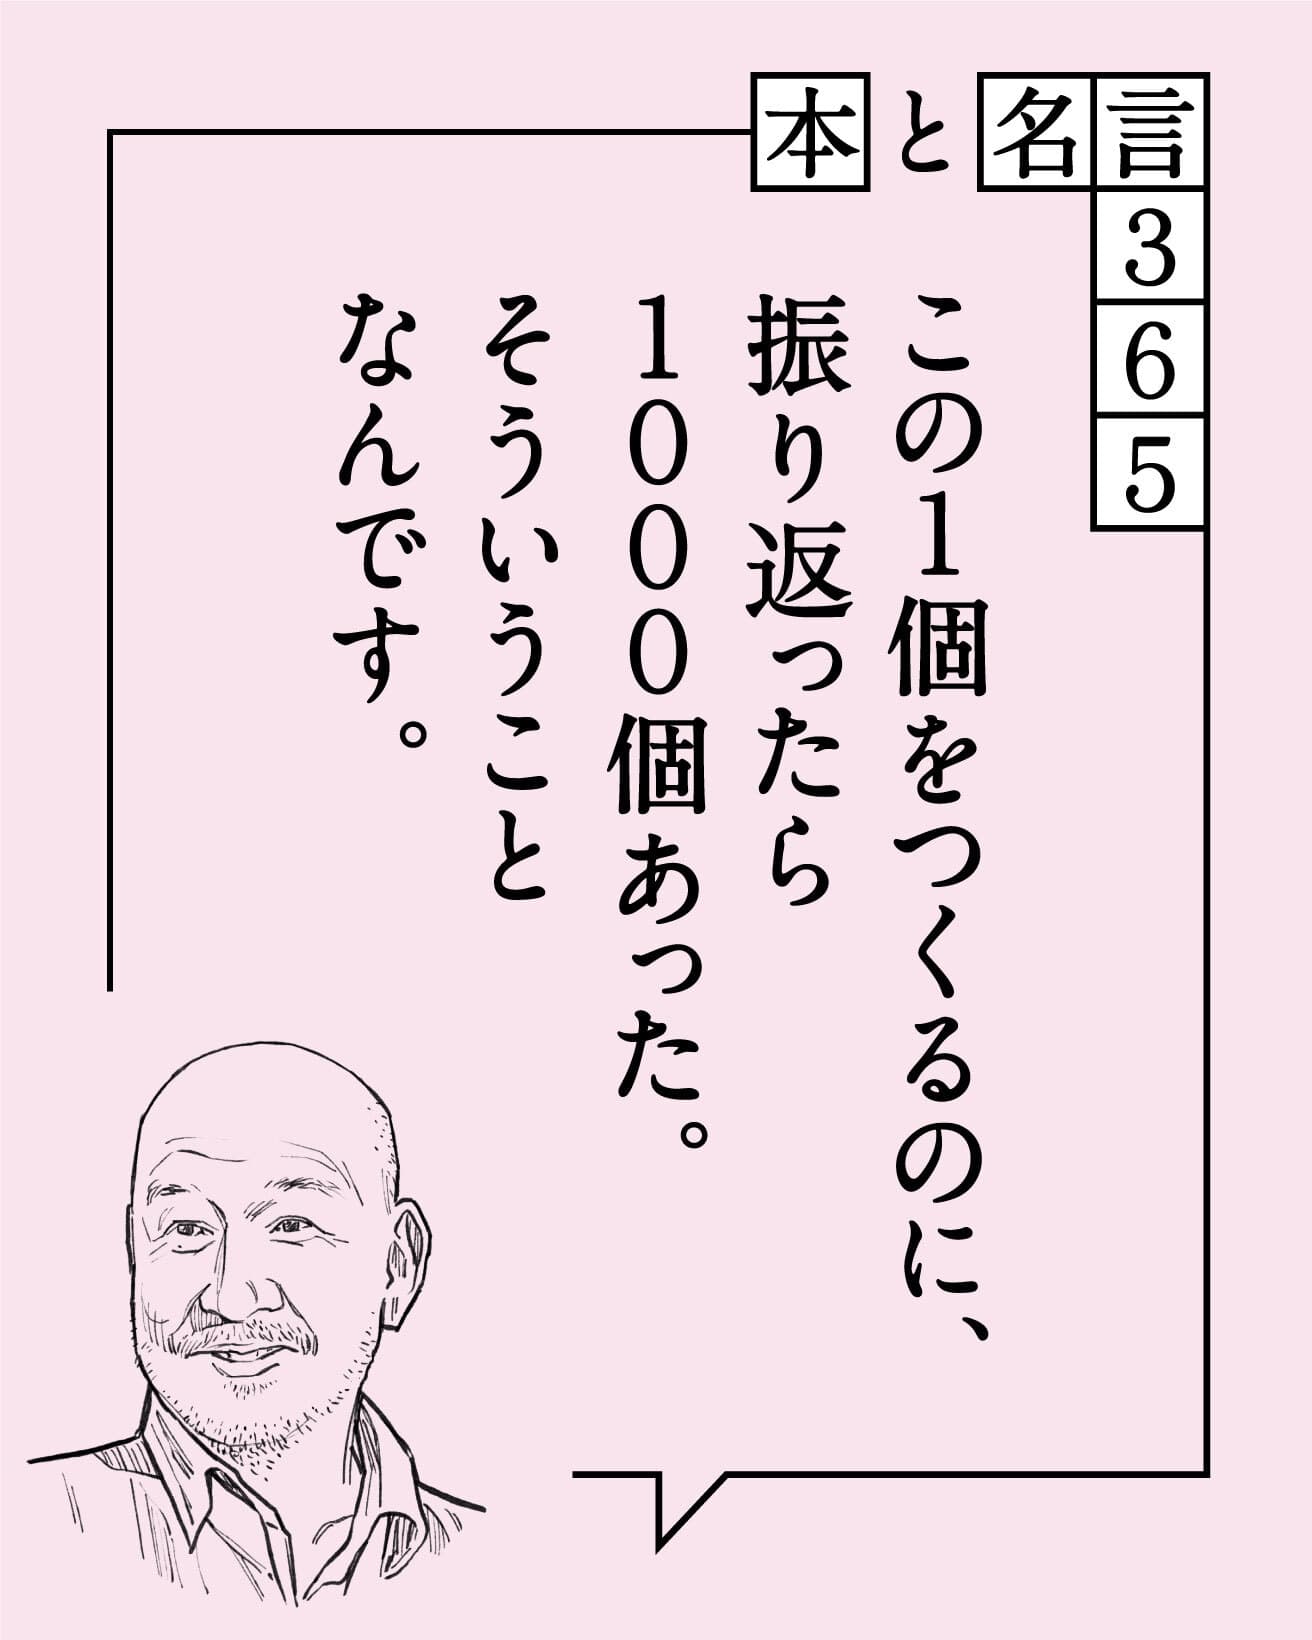 本と名言365
この1個をつくるのに、
振り返ったら
1000個あった。
そういうこと
なんです。